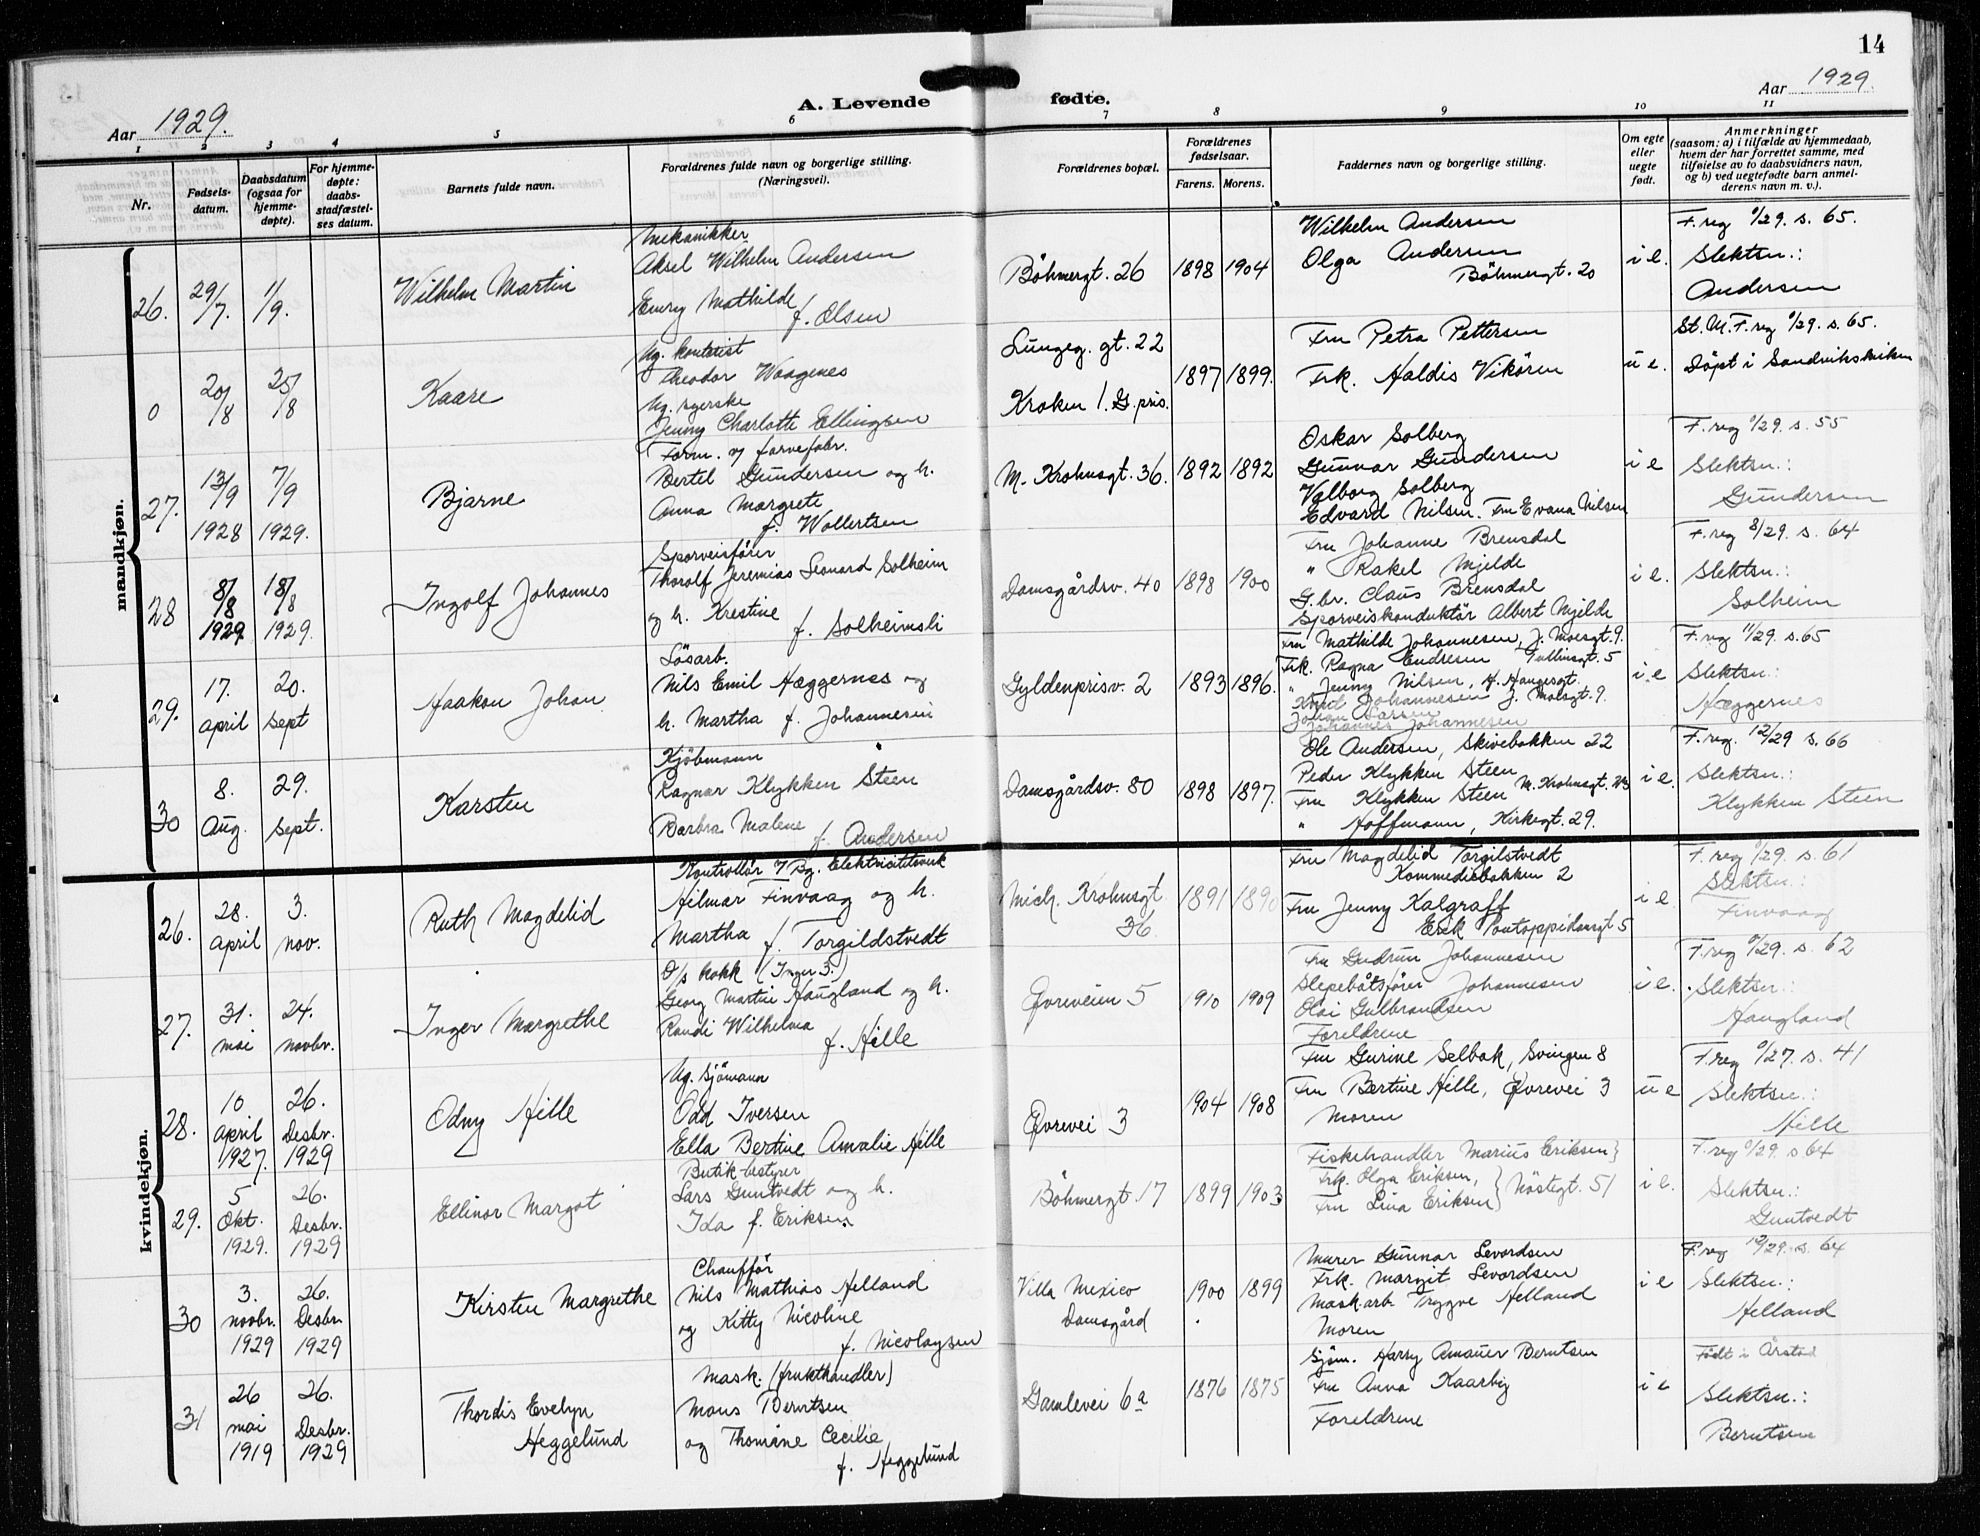 14
Aar 1929.
A. Levende fødte.
Aar 1929.
1 2 3 4 5 6 7 8 9 10 11
Nr.
Fødsels-
datum.
Daabsdatum
(ogsaa for
hjemme-
døpte).
For hjemme-
døpte:
daabs-
stadfæstel-
ses datum.
Barnets fulde navn.
Forældrenes fulde navn og borgerlige stilling.
(Næringsvei).
Forældrenes bopæl.
Forældrenes
fødselsaar.
Farens. Morens.
Faddernes navn og borgerlige stilling.
Om egte
eller
uegte
født.
Anmerkninger
(saasom: a) i tilfælde av hjemmedaab,
hvem der har forrettet samme, med
tilføielse av to daabsvidners navn,
og b) ved uegtefødte barn anmel-
derens navn m. v.).
mandkjøn.
26.
29/7.
1/9.
Wilhelm Martin
Mekanikker
Aksel Wilhelm Andersen
Emry Mathilde
f. Olsen
Böhmergt. 26
1898 1904
Wilhelm Andersen
Olga Andersen
Böhmergt. 20
i e.
F. reg /29. s. 65.
Slektsn.:
Andersen
0
20/8
25/8
Kaare
Ug. kontorist
Theodor Waagenes
Ug. syerske
Jenny Charlotte Ellingsen
Lungeg. gt. 22
Kroken 1. G. pris.
1897 1899.
Fru Petra Pettersen
Frk. Haldis Vikören
u e.
St. M. F. reg /29. s. 65.
Döpt i Sandvikskirken
27.
13/9
1928
7/9
1929.
Bjarne
Form. v/ farvefabr.
Bertel Gundersen og h.
Anna Margrete
f. Wollertsen
M. Krohnsgt. 36.
1892 1892
Oskar Solberg
Gunnar Gundersen
Valborg Solberg
Edvard Nilsen. Fru Evana Nilsen
i e
F. reg /29. s. 55
Slektsn.:
Gundersen
28
8/8
1929
18/8
1929.
Ingolf Johannes
Sporveisförer
Thorolf Jeremias Leonard Solheim
og h. Krestine
f. Solheimsli
Damsgårdsv. 40
1898 1900
Fru Johanne Brensdal
" Rakel Mjelde
G.br. Claus Brensdal
Sporveiskonduktör Albert Mjelde
i e.
F. reg 8/29. s. 64
Slektsn.:
Solheim
29.
17.
april
20.
sept
Haakon Johan
Lösarb.
Nils Emil Hæggernes og
h. Martha f. Johannesen
Gyldenprisv. 2
1893 1896.
Fru Mathilde Johannesen, J. Moesgt. 9.
Frk. Ragna Endresen Tullinsgt. 5
" Jenny Nilsen, H. Haugesgt.
Knut Johannesen J. Moesgt. 9.
Johan Larsen
Johannes Johannesen
i e
F. reg 11/29. s. 65
Slektsn.:
Hæggernes
30
8.
Aug.
29.
Sept.
Karsten
Kjöbmann
Ragnar Klykken Steen
Barbra Malene f. Andersen
Damsgårdsv. 80
1898 1897.
Ole Andersen, Skivebakken 22
Peder Klykken Steen
Fru Klykken Steen M. Krohnsgt.
" Hoffmann, Kirkegt. 29.
i e.
F. reg. 12/29 s. 66
Slektsn.:
Klykken Steen
kvindekjøn.
26.
28.
april
3.
nov.
Ruth Magdelid
Kontrollör v/ Bg. Elektricitetsverk
Hilmar Finvaag og h.
Martha f. Torgildstvedt
Mich. Krohnsgt
36
1891 1890
Fru Magdelid Torgilstvedt
Kommediebakken 2
Fru Jenny Kalgraff
Erik Pontoppidansgt 5
i e.
F. reg /29. s. 61
Slektsn.:
Finvaag
27.
31.
mai
24.
novbr.
Inger Margrethe
D/s kokk (Inger 3.)
Georg Martin Haugland og h.
Randi Wilhelma
f. Hille
Øvreveien 5
1910 1909
Fru Gudrun Johannesen
Slepebåtsförer Johannesen
Olai Gulbrandsen
Foreldrene
i e.
F. reg /29. s. 62
Slektsn.:
Haugland
28.
10
april
1927.
26.
Desbr.
1929
Odny Hille
Ug. sjömann
Odd Iversen
Ella Bertine Amalie Hille
Øvrevei 3
1904 1908
Fru Gurine Selbak, Svingen 8
Fru Bertine Hille, Øvrevei 3
Moren
u e
F. reg /27. s. 41
Slektsn.:
Hille
29.
5
Okt.
1929.
26.
Desbr.
1929
Ellinor Margot
Butik-bestyrer
Lars Guntvedt og h.
Ida f. Eriksen.
Böhmergt. 17
1899 1903
Fiskehandler Marius Eriksen }
Frk. Olga Eriksen,
Fru Lina Eriksen } Nöstegt. 51
i e.
F. reg /29. s 64
Slektsn.:
Guntvedt
30
3.
novbr.
1929
26.
Desbr
1929
Kirsten Margrethe
Chaufför
Nils Mathias Helland
og Kitty Nicoline
f. Nicolaysen
Villa Mexico
Damsgård
1900 1899
Murer Gunnar Levordsen
Frk. Margit Levordsen
Mask.arb. Trygve Helland
Moren
i e
F. reg 10/29. s. 64
Slektsn.:
Helland
31
26
mai
1919
26.
Desbr.
1929
Thordis Evelyn
Heggelund
Mask. (frukthandler)
Mons Berntsen
og Thomine Cecilie
f. Heggelund
Gamlevei 6a
1876 1875
Sjöm. Harry Amauer Berntsen
Fru Anna Kaarbig
Foreldrene
i e
Födt i Årstad
Slektsn.:
Berntsen